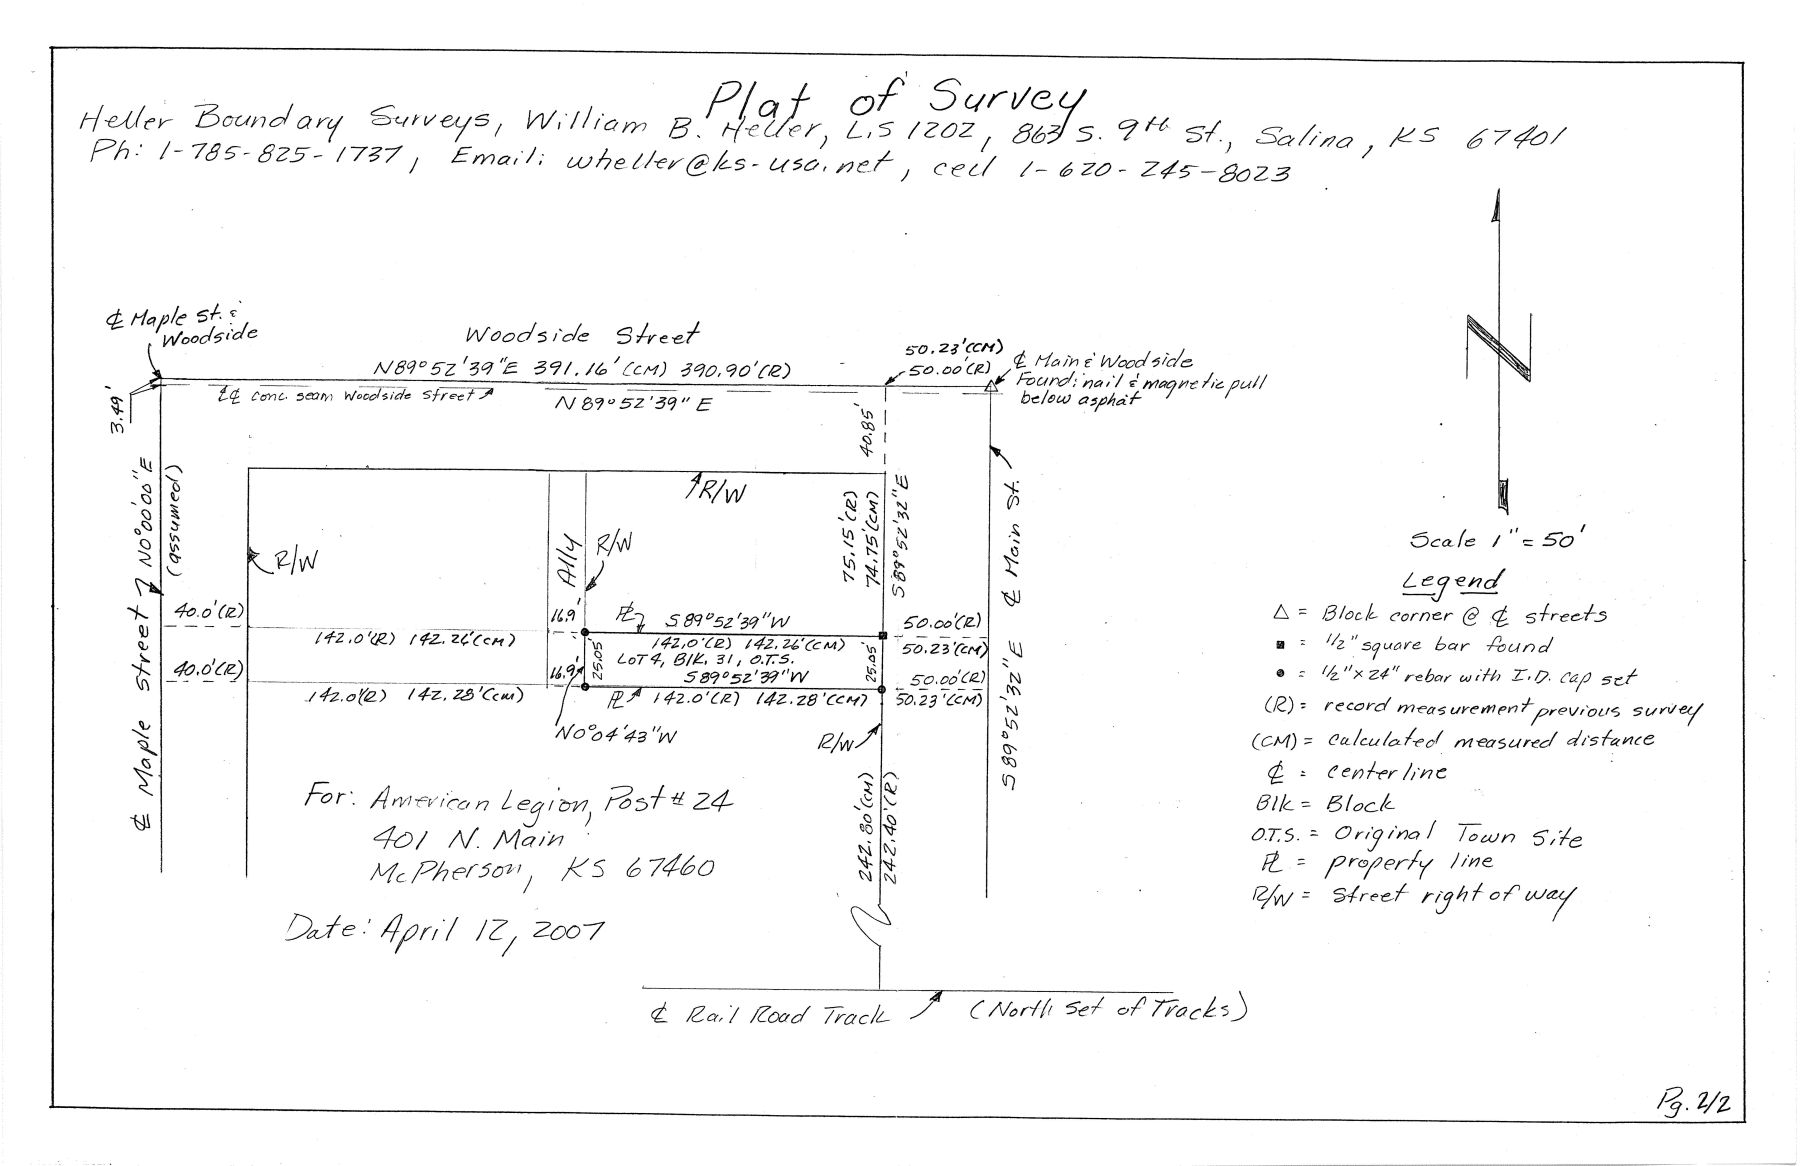 Plat of Survey
Heller Boundary Surveys, William B. Heller, L.S 1202, 863 S. 9th St., Salina, KS 67401
Ph: 1-785-825-1737, Email: wheller@ks-usa.net, cell 1-620-245-8023
℄ Maple St. &
Woodside
Woodside Street
N89°52'39"E 391.16' (CM) 390.90' (R)
50.23' (CM)
50.00' (R)
℄ Main & Woodside
Found: nail & magnetic pull
below asphalt
3.49'
℄ conc. seam Woodside Street
N 89°52'39" E
40.85'
℄ Maple Street
N0°00'00"E
(assumed)
R/W
Ally
R/W
R/W
75.15' (R)
74.75' (CM)
S89°52'32"E
℄ Main St.
S89°52'32"E
40.0' (R)
142.0' (R) 142.26' (CM)
16.9'
PL
S 89°52'39" W
142.0' (R) 142.26' (CM)
50.00' (R)
50.23' (CM)
LOT 4, Blk. 31, O.T.S.
25.05'
25.05'
40.0' (R)
142.0' (R) 142.28' (CM)
16.9'
S89°52'39"W
PL
142.0' (R) 142.28' (CM)
50.00' (R)
50.23' (CM)
N0°04'43"W
R/W
242.80' (CM)
242.40' (R)
For: American Legion, Post # 24
401 N. Main
McPherson, KS 67460
Date: April 12, 2007
℄ Rail Road Track (North Set of Tracks)
N
Scale 1" = 50'
Legend
△ = Block corner @ ℄ streets
■ = 1/2" square bar found
● = 1/2" x 24" rebar with I.D. cap set
(R) = record measurement previous survey
(CM) = calculated measured distance
℄ = centerline
Blk = Block
O.T.S. = Original Town Site
PL = property line
R/W = Street right of way
Pg. 2/2